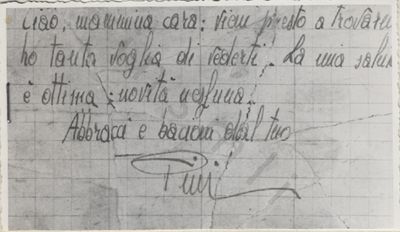 ciao, mammina cara: vieni presto a trovarmi
ho tanta voglia di vederti. La mia salute
è ottima: novità nessuna.
Abbracci e bacioni dal tuo